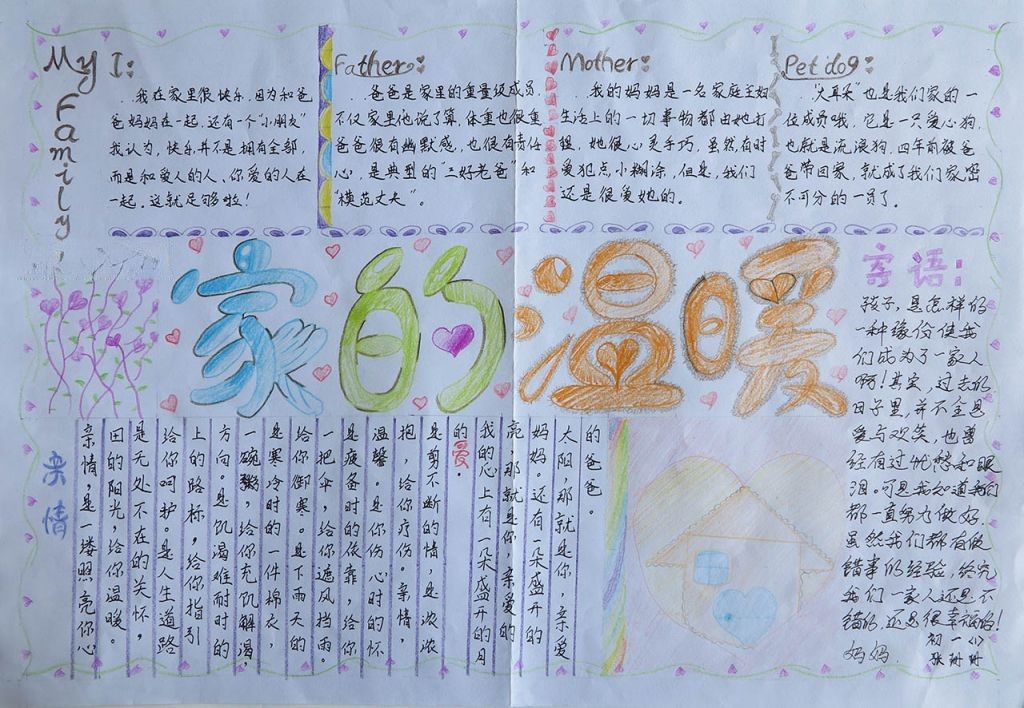 My Family,
I:
我在家里很快乐,因为和爸
爸妈妈在一起,还有一个“小朋友”
我认为,快乐并不是拥有全部,
而是和爱人的人、你爱的人在
一起。这就足够啦!
Father:
爸爸是家里的重量级成员
不仅家里他说了算,体重也很重
爸爸很有幽默感,也很有责任
心,是典型的“三好老爸”和
“模范丈夫”。
Mother:
我的妈妈是一名家庭主妇
生活上的一切事物都由她打
理,她很心灵手巧,虽然有时
爱犯点小糊涂,但是,我们
还是很爱她的。
Pet dog:
“大耳朵”也是我们家的一
位成员哦,它是一只爱心狗,
也就是流浪狗,四年前被爸
爸带回家,就成了我们家密
不可分的一员了。
家的温暖
寄语:
孩子,是怎样的
一种缘份使我
们成为了一家人
啊!其实,过去的
日子里,并不全是
爱与欢笑,也曾
经有过忧愁和眼
泪。可是我知道我们
都一直努力做好,
虽然我们都有做
错事的经验,终究
我们一家人还是不
错的,还是很幸福的!
妈妈
初一(1)
张珊珊
亲情
亲情,是一缕照亮你心
田的阳光,给你温暖。
是无处不在的关怀,
给你呵护。是人生道路
上的路标,给你指引
方向。是饥渴难耐时的
一碗粥,给你充饥解渴,
是寒冷时的一件棉衣,
给你御寒。是下雨天的
一把伞,给你遮风挡雨。
是疲备时的依靠,给你
温馨。是你伤心时的怀
抱,给你疗伤。亲情,
是剪不断的情,是浓浓
的爱。
我的心上有一朵盛开的月
亮,那就是你,亲爱的
妈妈。还有一朵盛开的
太阳,那就是你,亲爱
的爸爸。